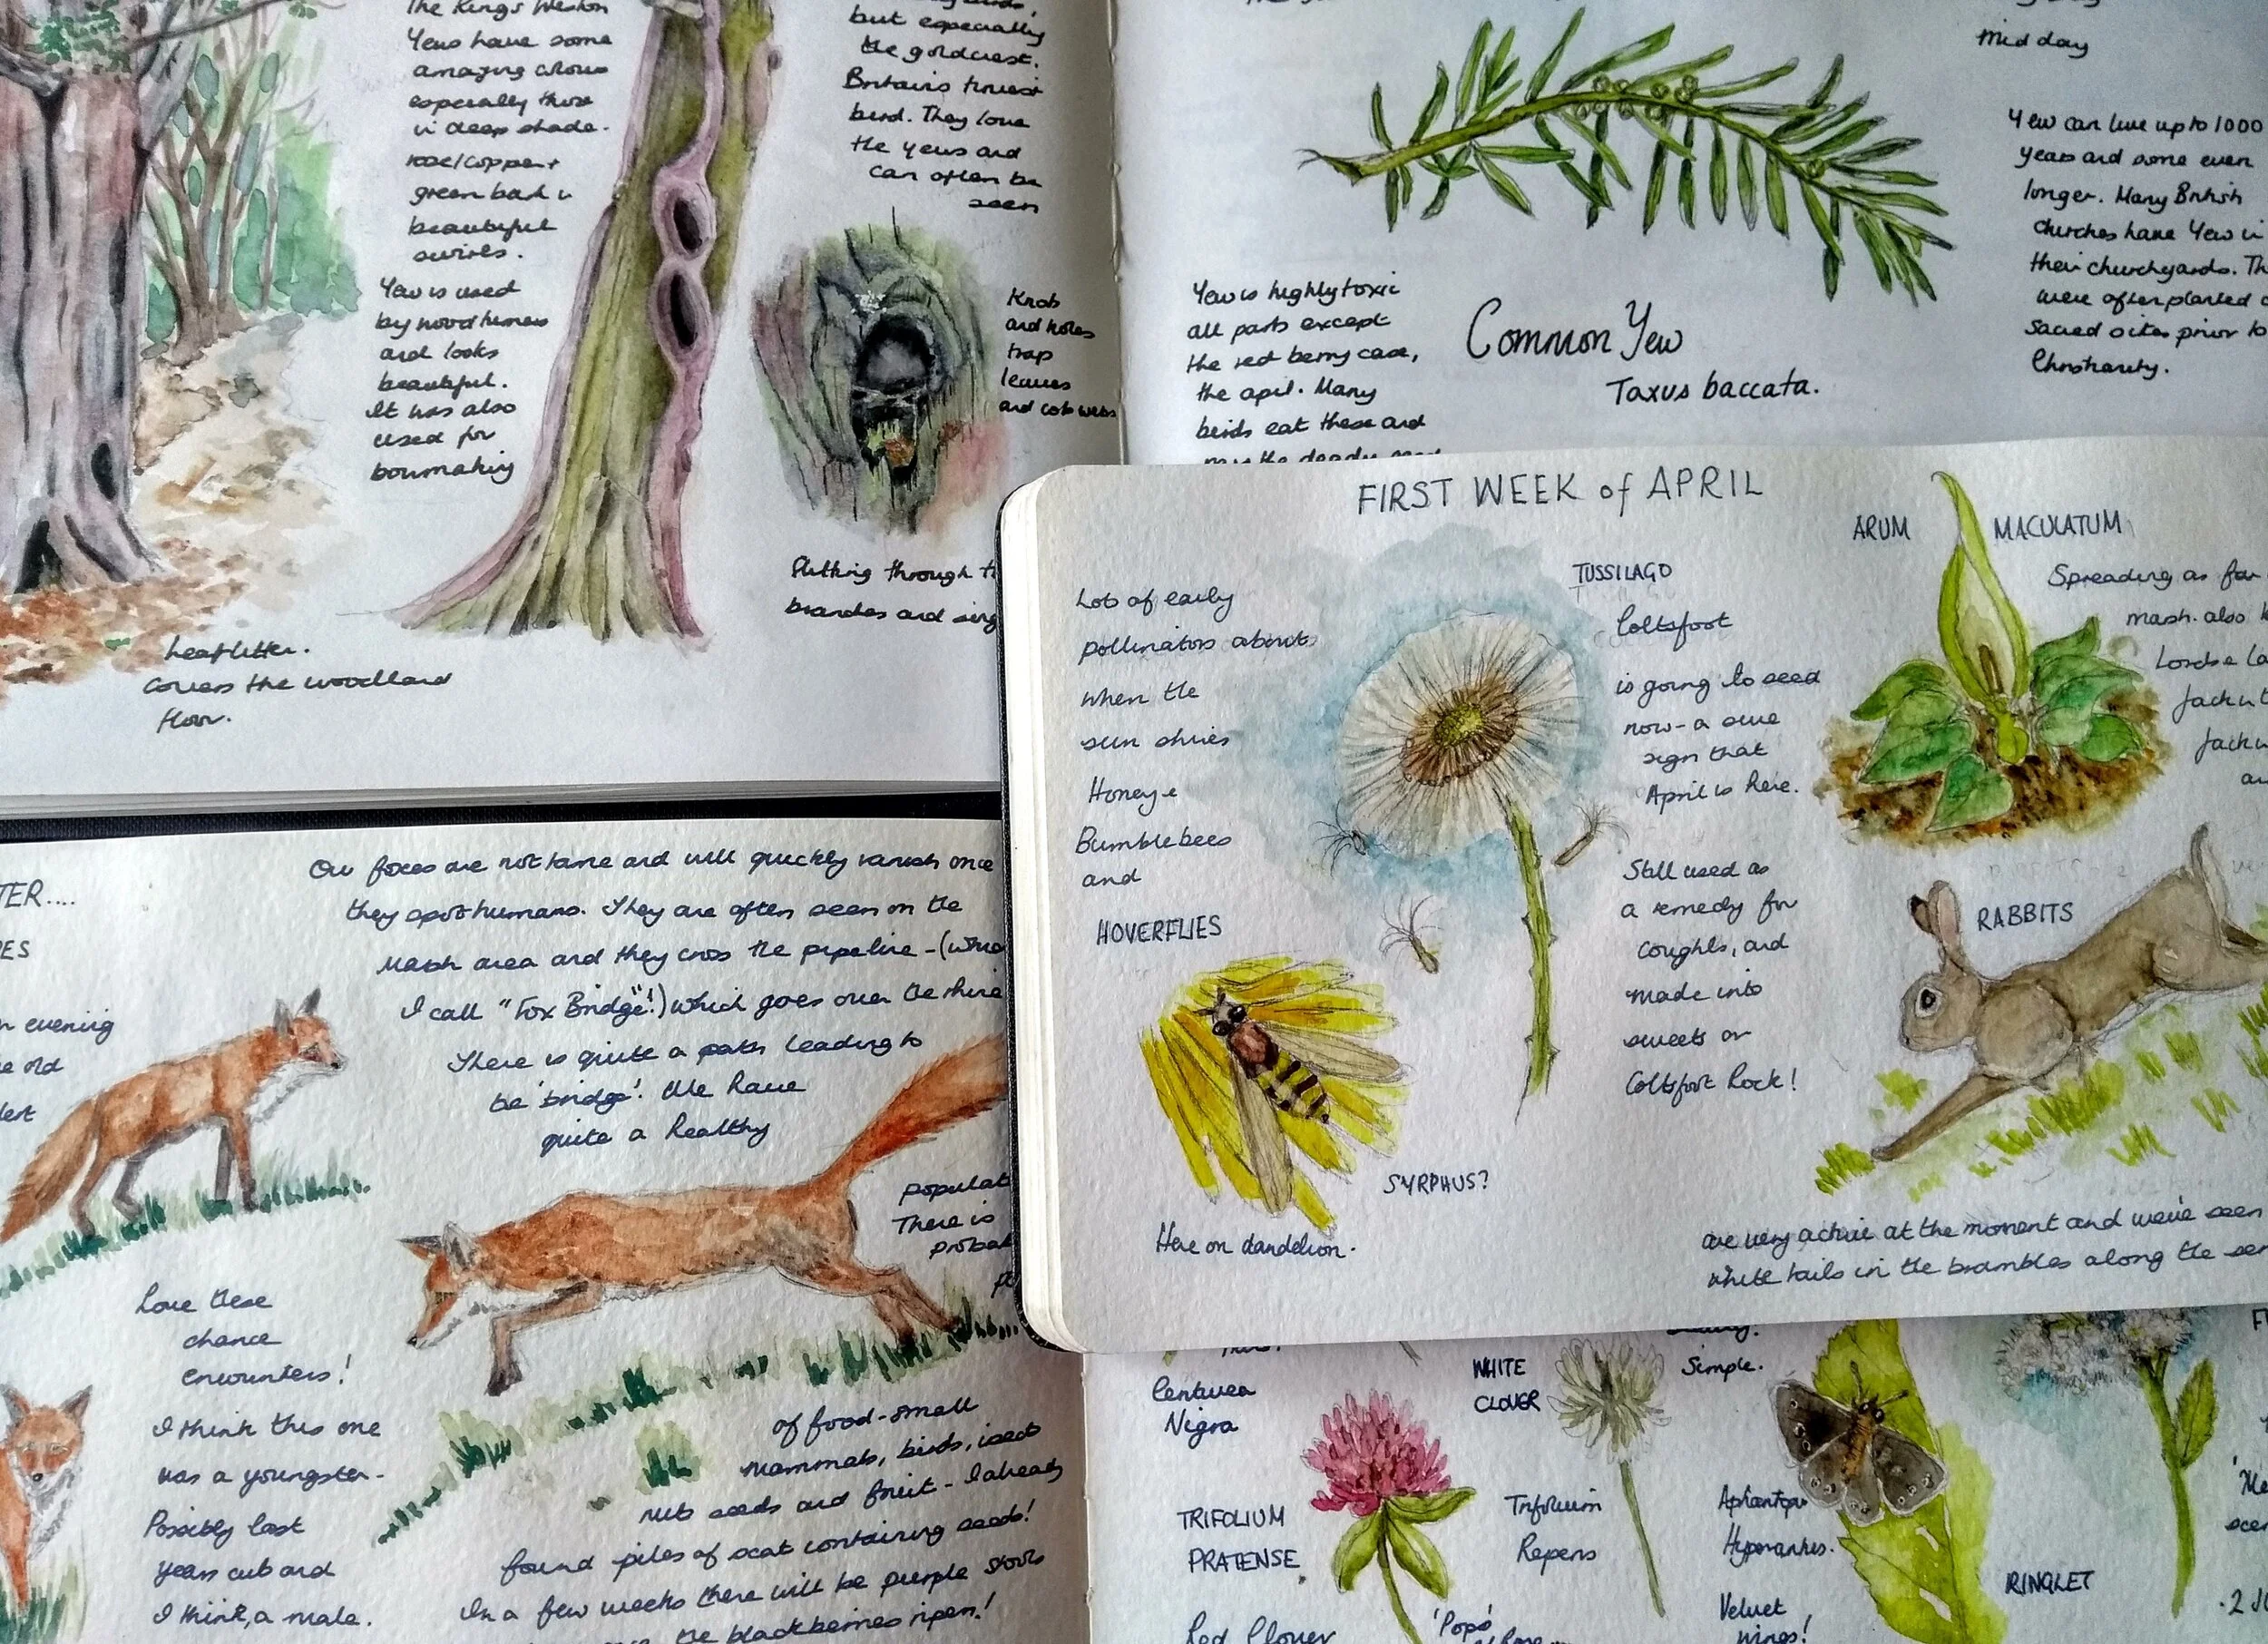 The Kings Weston
Yews have some
amazing colours
especially those
in deep shade.
rose/copper +
green bark in
beautiful
swirls.
Yew is used
by wood turners
and looks
beautiful.
It was also
used for
bowmaking
Leaf litter.
Covers the woodland
floor.
but especially
the goldcrest.
Britains tiniest
bird. They love
the yews and
can often be
seen
Knobs
and holes
trap
leaves
and cobwebs
Flitting through
branches and
Mid day
Yew is highly toxic
all parts except
the red berry case,
the aril. Many
birds eat these and
pass the deadly seed
Common Yew
Taxus baccata.
Yew can live up to 1000
years and some even
longer. Many British
churches have Yew in
their churchyards.
were often planted
sacred sites prior to
Christianity.
FIRST WEEK of APRIL
Lots of early
pollinators about
when the
sun shines
Honey +
Bumblebees
and
HOVERFLIES
SYRPHUS?
Here on dandelion.
TUSSILAGO
Coltsfoot
is going to seed
now - a sure
sign that
April is here.
Still used as
a remedy for
coughs, and
made into
sweets or
Coltsfoot Rock!
ARUM MACULATUM
Spreading as far
marsh. also
Lords + La
Jack
Jack
RABBITS
are very active at the moment and we've seen
white tails in the brambles along the
TER....
ES
evening
old
Our foxes are not tame and will quickly vanish once
they spot humans. They are often seen on the
Marsh area and they cross the pipeline - (which
I call "Fox Bridge"!) which goes over the rhine
There is quite a path leading to
the 'bridge'. We have
quite a healthy
populat
There is
probab
of food - small
mammals, birds, insects
nuts seeds and fruit - I already
found piles of scat containing seeds!
In a few weeks there will be purple stools
the blackberries ripen!
Love these
chance
encounters!
I think this one
was a youngster -
Possibly last
years cub and
I think, a male.
Centurea
Nigra
TRIFOLIUM
PRATENSE
Red Clover
WHITE
CLOVER
Trifolium
Repens
'Popo'
Simple.
Aphantopus
Hyperantus.
Velvet
wings!
RINGLET